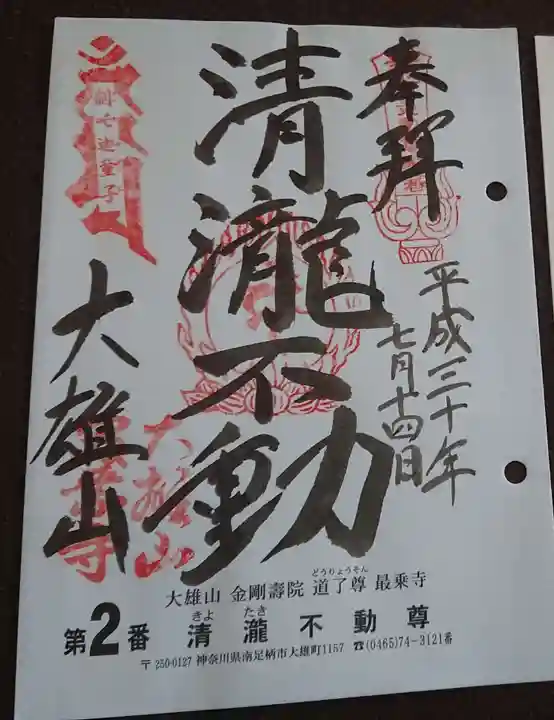 奉拜
平成三十年
七月十四日
清瀧不動
大雄山
大雄山
大雄山 金剛壽院 道了尊 最乗寺
どうりょうそん
第2番 清瀧不動尊
きよ たき
〒250-0127 神奈川県南足柄市大雄町1157 ☎(0465)74-3121番